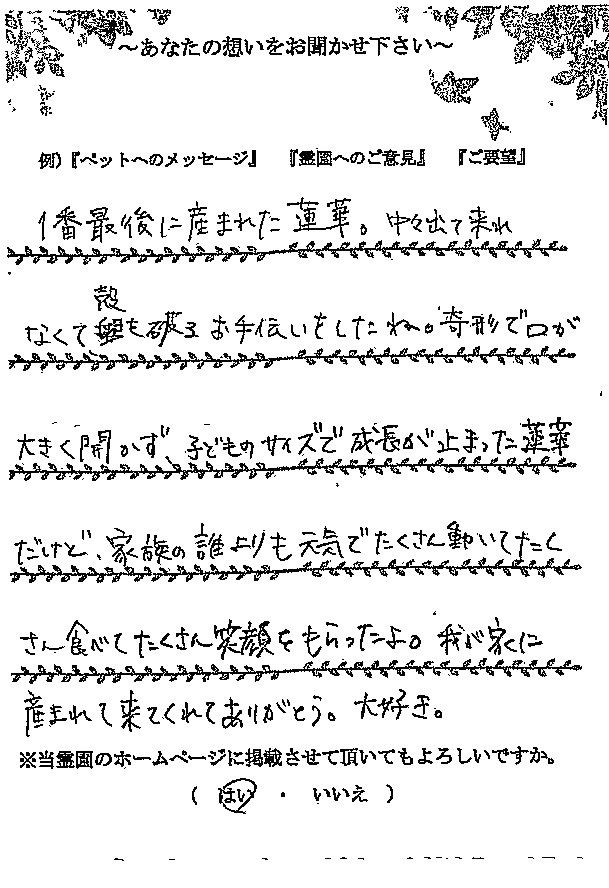 ～あなたの想いをお聞かせ下さい～
例)『ペットへのメッセージ』 『霊園へのご意見』 『ご要望』
1番最後に産まれた蓮華。中々出て来れ
殻
なくて を破るお手伝いをしたね。奇形で口が
大きく開かず、子どものサイズで成長が止まった蓮華
だけど、家族の誰よりも元気でたくさん動いてたく
さん食べてたくさん笑顔をもらったよ。我が家に
産まれて来てくれてありがとう。大好き。
※当霊園のホームページに掲載させて頂いてもよろしいですか。
( はい ・ いいえ )